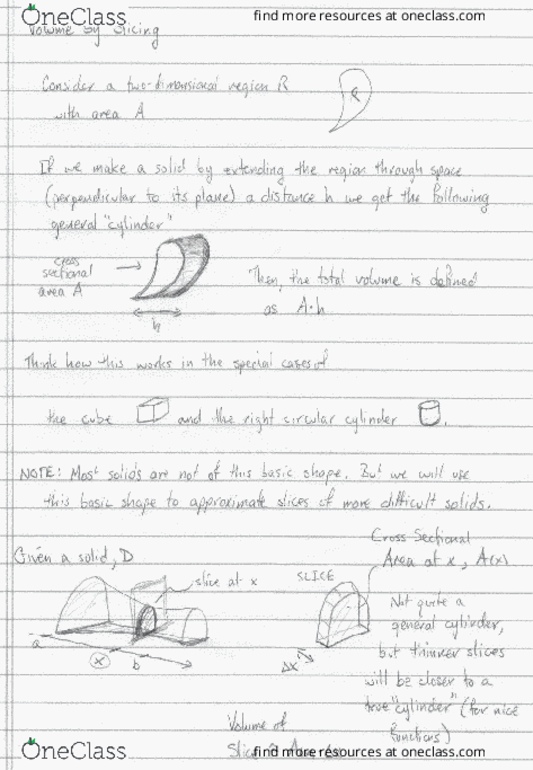 OneClass
find more resources at oneclass.com
Volume by Slicing
Consider a two-dimensional region R
R
with area A
If we make a solid by extending the region through space
(perpendicular to its plane) a distance h we get the following
general "cylinder"
cross
sectional
area A
h
Then, the total volume is defined
as A·h
Think how this works in the special cases of
the cube and the right circular cylinder.
NOTE: Most solids are not of this basic shape. But we will use
this basic shape to approximate slices of more difficult solids.
Given a solid, D
slice at x
a
x
b
SLICE
Δx
Cross Sectional
Area at x, A(x)
Not quite a
general cylinder,
but thinner slices
will be closer to a
true "cylinder" (for nice
functions)
Volume of
Slice
OneClass
find more resources at oneclass.com